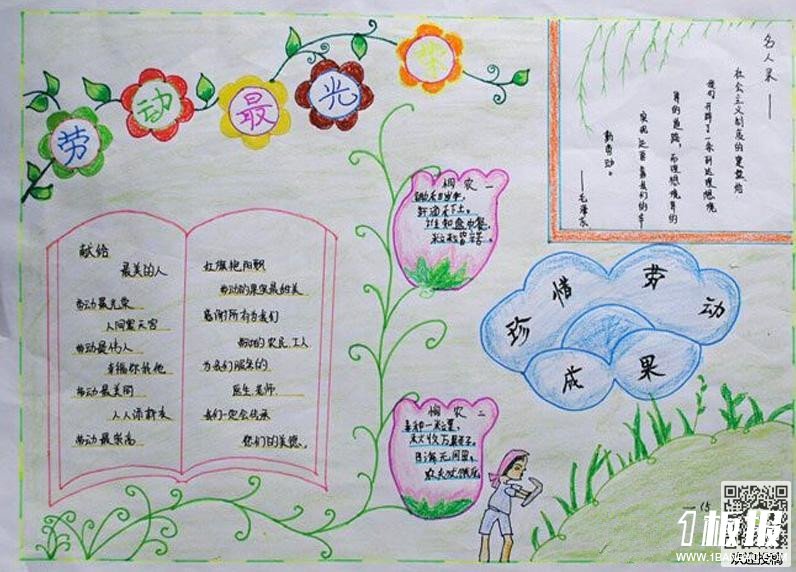 劳动最光荣
名人录——
社会主义制度的建立给
我们开辟了一条到达理想境
界的道路，而理想境界的
实现还要靠我们的辛
勤劳动。
——毛泽东
悯农一
锄禾日当午，
汗滴禾下土。
谁知盘中餐，
粒粒皆辛苦。
珍惜劳动
成果
献给
最美的人
劳动最光荣
劳动最伟人
幸福你我他
劳动最美丽
人人添新衣
劳动最崇高
红旗艳阳飘
劳动的果实最甜美
感谢所有为我们
的农民工人
为我们服务的
医生老师
我们一定会传承
您们的美德。
悯农二
春种一粒粟，
秋收万颗子。
四海无闲田，
农夫犹饿死。
15
1板报
WWW.1BANBAO.COM
欢迎投稿